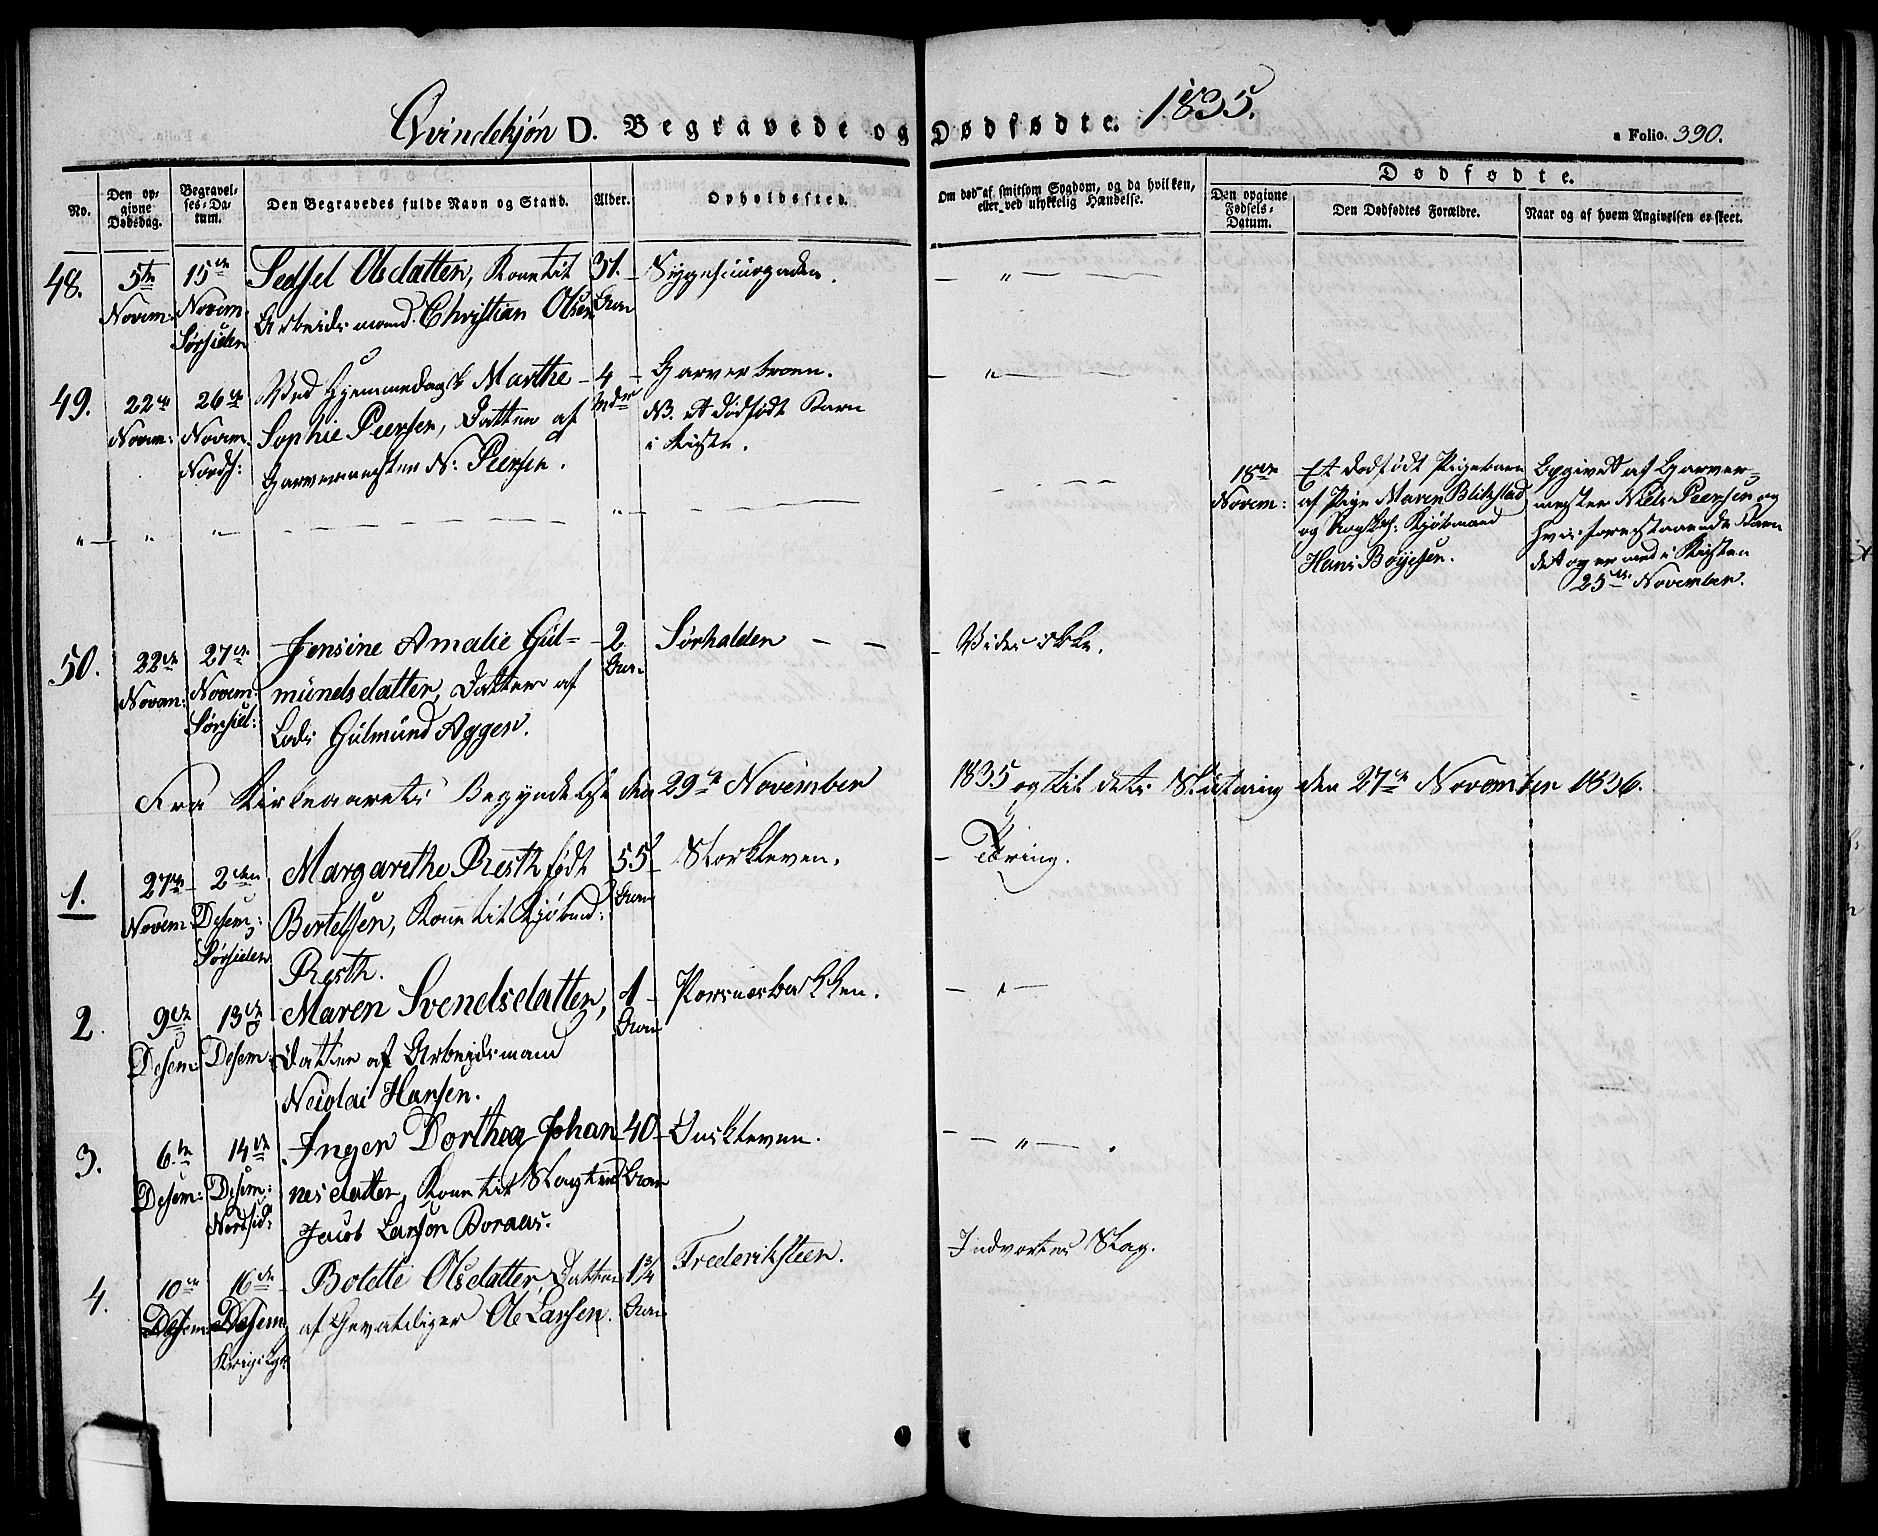 Qvindekjøn D. Begravede og Dødfødte. 1835.
a Folio. 390.
No.
Den opgivne Dødsdag.
Begravelses-Datum.
Den Begravedes fulde Navn og Stand.
Alder.
Opholdssted.
Om død af smitsom Sygdom, og da hvilken, eller ved ulykkelig Hændelse.
Dødfødte.
Den opgivne Fødsels-Datum.
Den Dødfødtes Forældre.
Naar og af hvem Angivelsen er skeet.
48.
5te Novem:
15de Novem: Sørsiden
Sedsel Olsdatter, Kone til
Arbeidsmand Christian Olsen
31. Aar
49.
22de Novem:
26de Novem: Nords:
Ved Hjemmedaab Marthe
Sophie Peersen, Datter af
Garvermester N: Peersen.
4 Mdr
Garverbroen.
NB. et dødfødt Barn
i Kiste.
18de Novem:
Et dødfødt Pigebarn
af Pige Maren Blikstad
og Kjøbmand
Hans Böyesen.
Opgivet af Garver-
mester Niels Peersen og
hvis forestaaende Barn
det og er med i Kisten
25de November.
50.
22de Novem:
27de Novem: Sørsid:
Jensine Amalie Gul-
mundsdatter, Datter af
Lods Gulmund Aggen.
2 Aar
Sørhalden
Vides ikke.
Fra Kirkeaarets Begyndelse den 29de November 1835 og til dets Slutning den 27de November 1836.
1.
27de Novem:
2den Desem: Sørsiden
Margarethe Resth født
Bertelsen, Kone til Kjøbmd:
Resth.
55 Aar
Storkleven.
Tæring.
2.
9de Desem:
13de Desem:
Maren Svendsdatter,
Datter af Arbeidsmand
Nicolai Hansen.
1 Aar
Porsnesbakken.
3.
6te Desem:
14de Desem: Nordsid:
Inger Dorthea Johan-
nesdatter, Kone til Slagter
Jacob Larson Boraas.
40 Aar
4.
10de Desem:
16de Desem:
Bolette Olsdatter, Datter
af Gevaldiger Ole Larsen.
1 3/4 Aar
Frederiksteen.
Indvortes Slag.